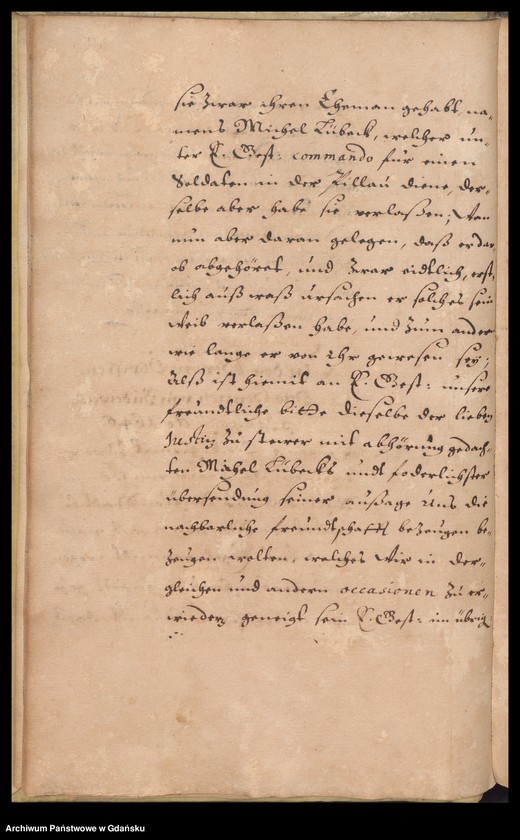 sie zwar ihren Eheman gehabt na-
mens Michel Lübeck, welcher un-
ter E. Gest: commando für einen
Soldaten in der Pillau diene, der-
selbe aber habe sie verlaßen; Wan
nun aber daran gelegen, daß er dar
ob abgehöret, und zwar eidtlich, erst-
lich auß waß ursachen er solches sein
Weib verlaßen habe, und zum andern
wie lange er von Ihr gewesen sey;
Alß ist hiemit an E. Gest: unsere
freundtliche bitte dieselbe der lieben
Justitz zu stewer mit abhörung gedach-
ten Michel Lübecks undt foderlichster
übersendung seiner außage Uns die
nachbarliche freundtschafft bezeugen be-
zeugen wolten, welches Wir in der-
gleichen und andern occasionen zu er-
wiedern geneigt sein E. Gest: im übrig
Archiwum Państwowe w Gdańsku